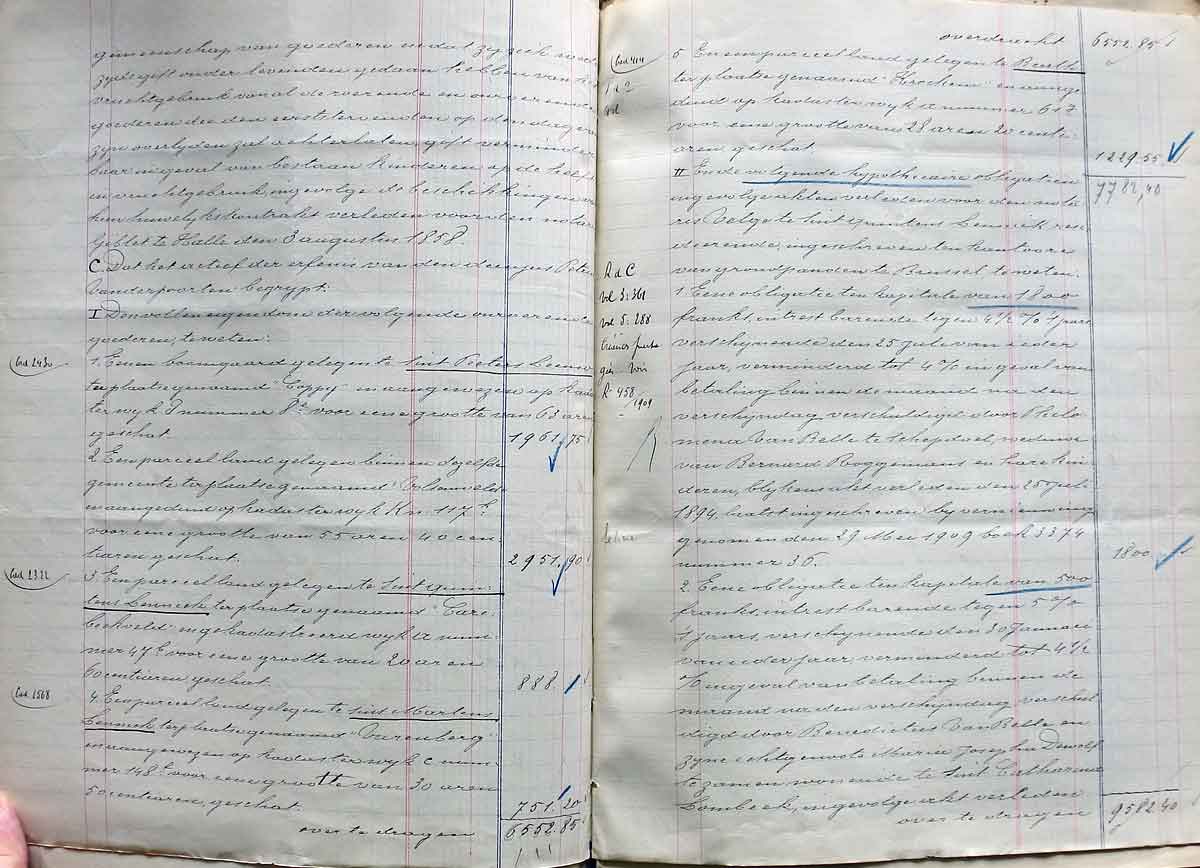 gemeenschap van goederen en dat zy zich
zyds gift onder levenden gedaan hebben van het
vruchtgebruik van al de roerende en onroerende
goederen die den eerststervenden op den dag van
zyn overlyden zal achterlaten, gift verminder
baar ingeval van bestaan kinderen op de helft
in vruchtgebruik, ingevolge de beschikkingen van
hun huwelykskontrakt verleden voor den nota
Geblet te Halle den 3 augustus 1858.
C. Dat het actief der erfenis van den de cujus Peter
Vanderpoorten begrypt:
I Den vollen eigendom der volgende onroerende
goederen, te weten:
Cad 2430
1. Eenen boomgaard gelegen te Sint Pieters Leeuw
ter plaats genaamd "Coppy" en aangewezen op kadas
ter wyk nummer voor eene grootte van 63 aren
geschat. 1961,75
2 Een parceel land gelegen binnen dezelfde
gemeente ter plaats genaamd
en aangeduid op kadaster wyk K nr 117
voor eene grootte van 55 aren 40 cen
tiaren geschat. 2951,90
Cad 2322
3. Een parceel land gelegen te Sint Quin-
tens Lennick ter plaats genaamd
ingekadastreerd wyk num-
mer 47 voor eene grootte van 20 aren
60 centiaren geschat. 888,
Cad 1568
4. Een parceel land gelegen te Sint Martens
Lennick ter plaats genaamd "Varenberg"
en aangewezen op kadaster wyk C num-
mer 148 voor eene grootte van 30 aren
50 centiaren, geschat. 751,20
over te dragen 6552,85
overdracht 6552.85
Cad 414
5 Een een parceel land gelegen te
ter plaats genaamd en aange
duid op kadaster wyk nummer 617
voor eene grootte van 28 aren 20 centi-
aren, geschat 1229.55
II En de volgende hypothecaire obligatien 7782,40
ingevolge akten verleden voor den nota
ris Velge te Sint Quintens Lennick resi
deerende, ingeschreven ten kantoore
van grondpanden te Brussel te weten:
R d C
vol 3: 361
vol 5: 288
R 458
/1909
1 Eene obligatie ten kapitale van 1800
franks, intrest barende tegen 4½ % 's jaars
verschynende den 25 july van ieder
jaar, verminderd tot 4% in geval van
betaling binnen de maand na den
verschyndag, verschuldigd door Philo
mena Van Belle te Schepdael, weduwe
van Bernard Roggemans en hare kin
deren, blykens akt verleden den 25 july
1894, laatst ingeschreven by vernieuwing
genomen den 29 Mei 1909 boek 3374
nummer 36. 1800
2. Eene obligatie ten kapitale van 500
franks, intrest barende tegen 5 %
's jaars, verschynende den 30 January
van ieder jaar, verminderd tot 4½
% ingeval van betaling binnen de
maand na den verschyndag, verschul
digd door Benedictus Van Belle en
zyne echtgenoote Maria Josephine Dewolf
te zamen wonende te Sint Catharina
Lombeek, ingevolge akt verleden
over te dragen 9582.40